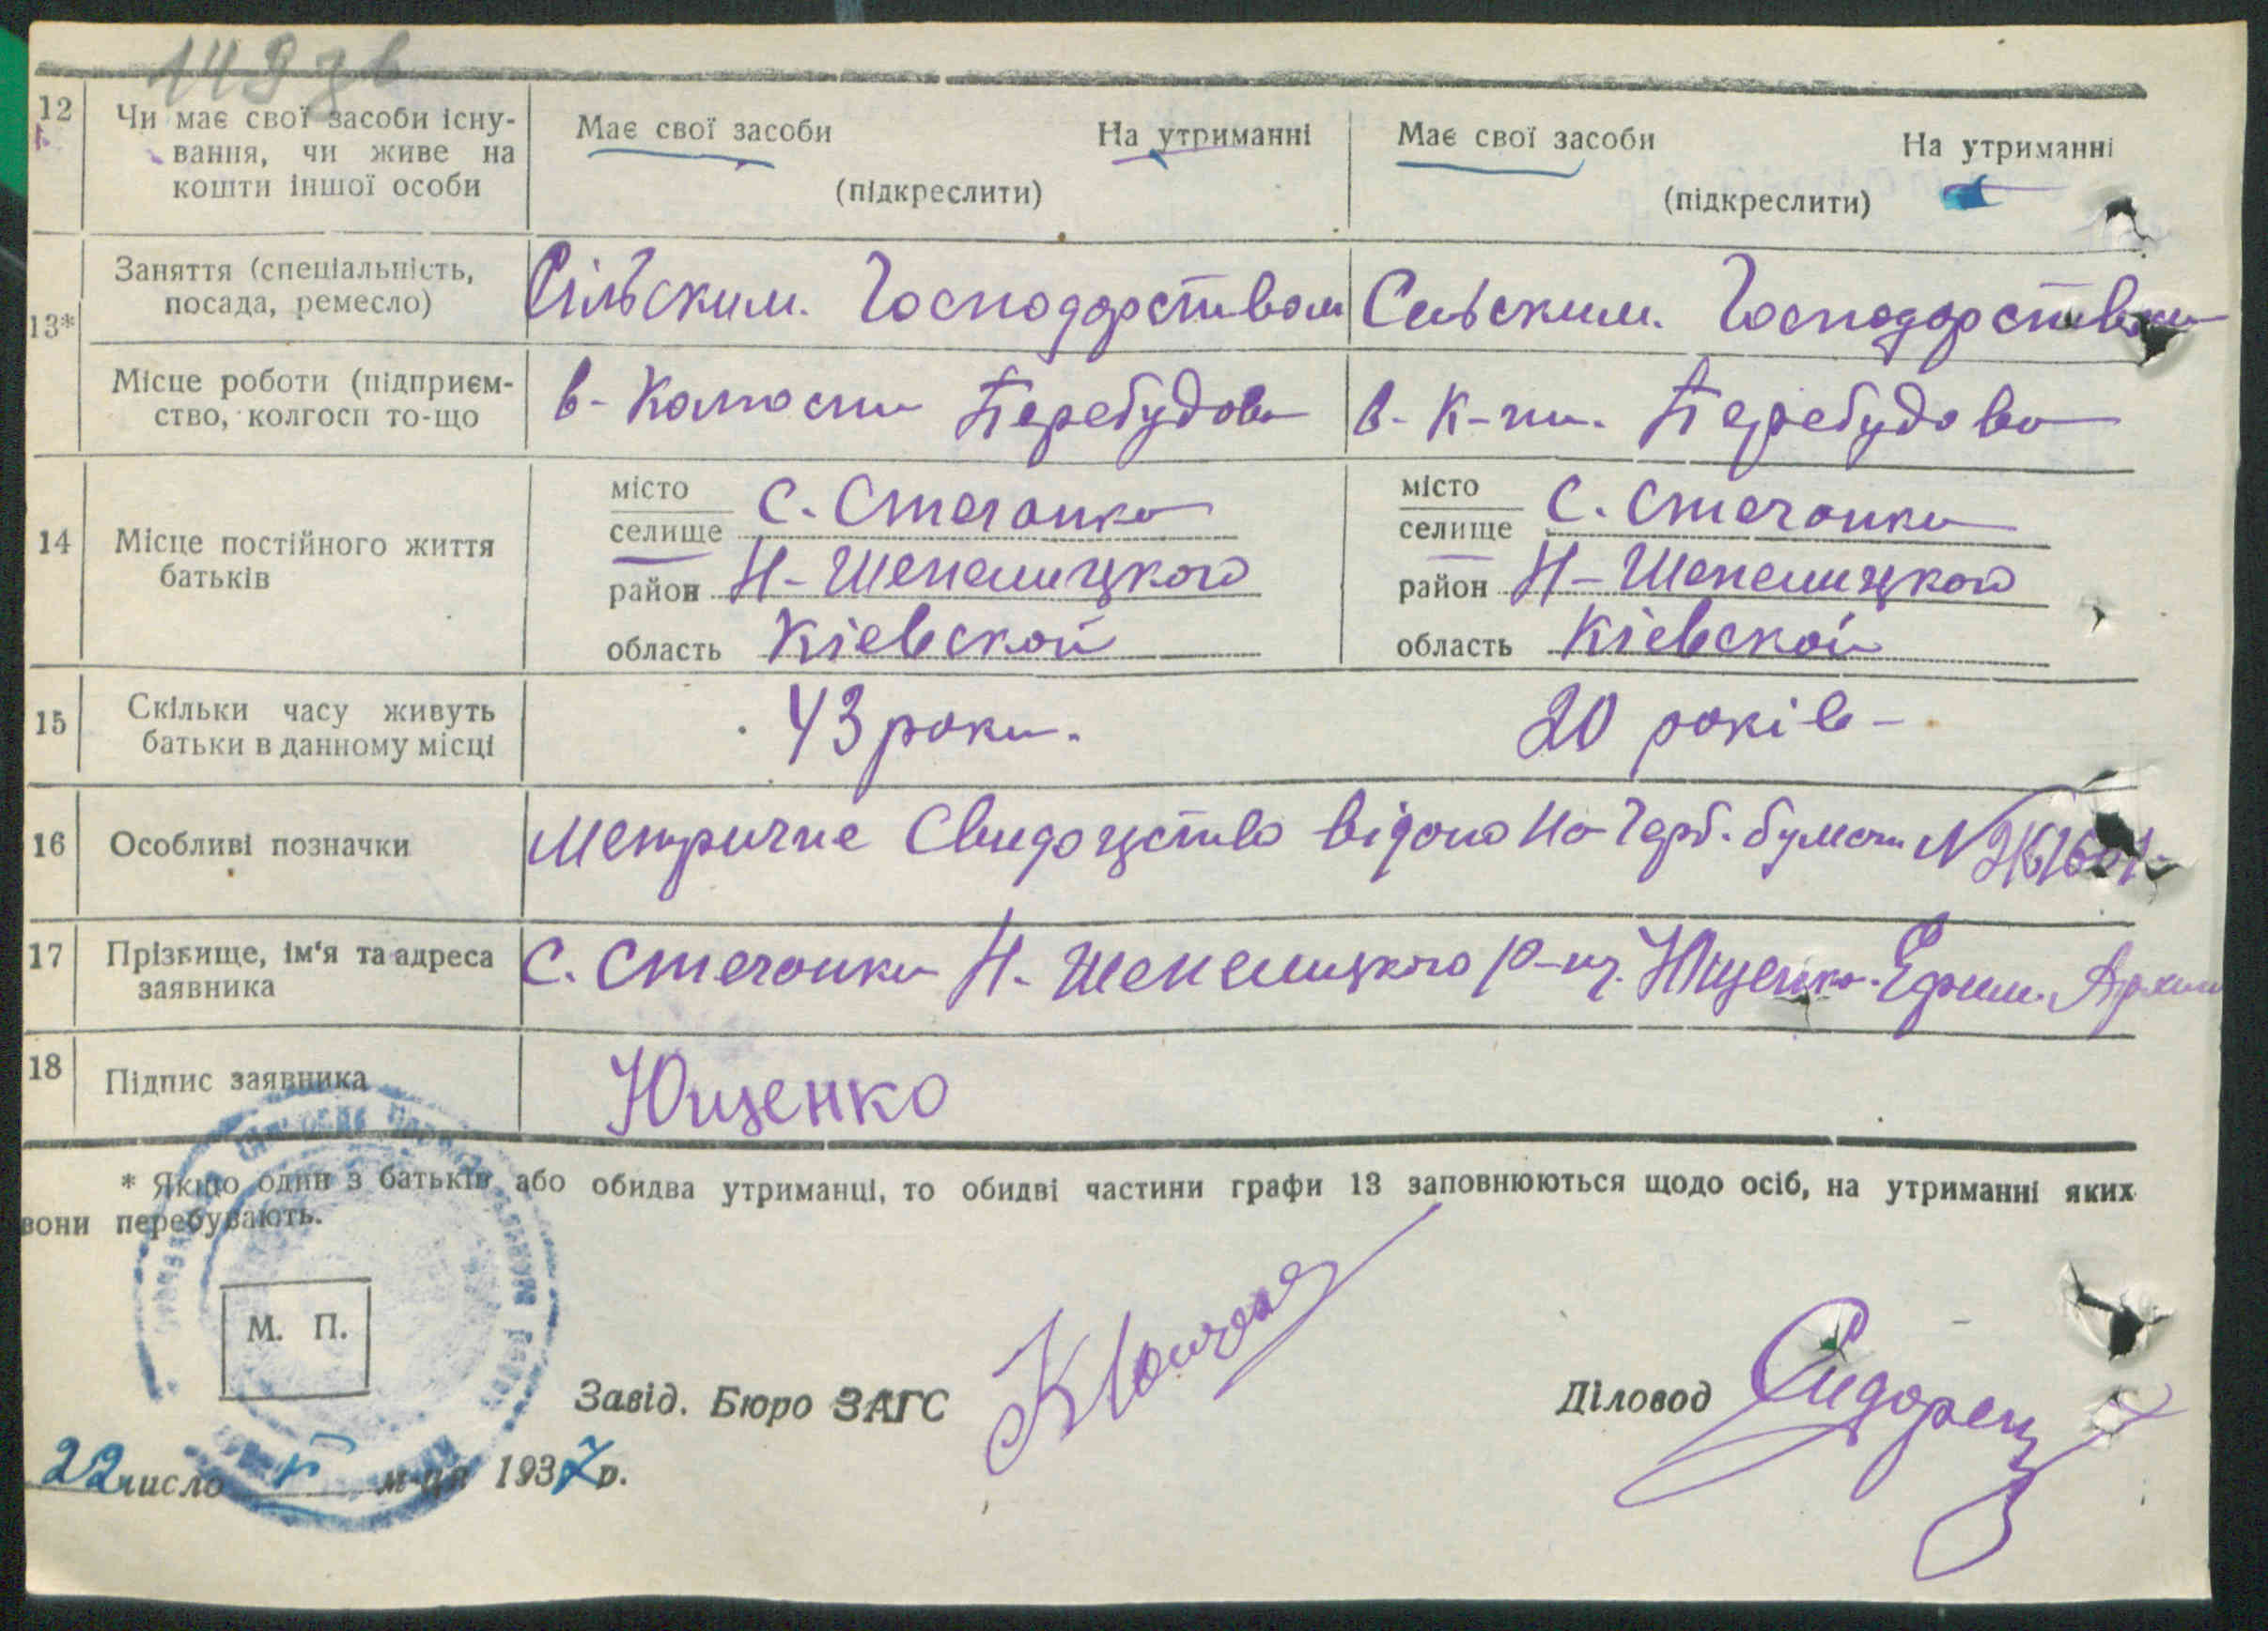 149 зв
12 Чи має свої засоби існу-
вання, чи живе на
кошти іншої особи
Має свої засоби На утриманні
(підкреслити)
Має свої засоби На утриманні
(підкреслити)
13*
Заняття (спеціальність,
посада, ремесло)
Сільским. Господарством
Сельским. Господарством
Місце роботи (підприєм-
ство, колгосп то-що
в- Колгоспи Перебудова
в- К-пи. Перебудова
14 Місце постійного життя
батьків
місто
селище С. Стечанка
район Н-Шепелицкого
область Кіевской
місто
селище С. Стечанка
район Н-Шепелицкого
область Кіевской
15 Скільки часу живуть
батьки в данному місці
43 роки.
20 років-
16 Особливі позначки
Метричне Свидоцтво відано на герб. бумаги N
17 Прізвище, ім'я та адреса
заявника
С. Стечанки Н. Шепелицкого р-ну. Ющенко. Ефим.
18 Підпис заявника
Ющенко
* Якщо один з батьків або обидва утриманці, то обидві частини графи 13 заповнюються щодо осіб, на утриманні яких
вони перебувають.
М. П.
Завід. Бюро ЗАГС
Діловод Сидорец
22 число V м-ця 1937 р.